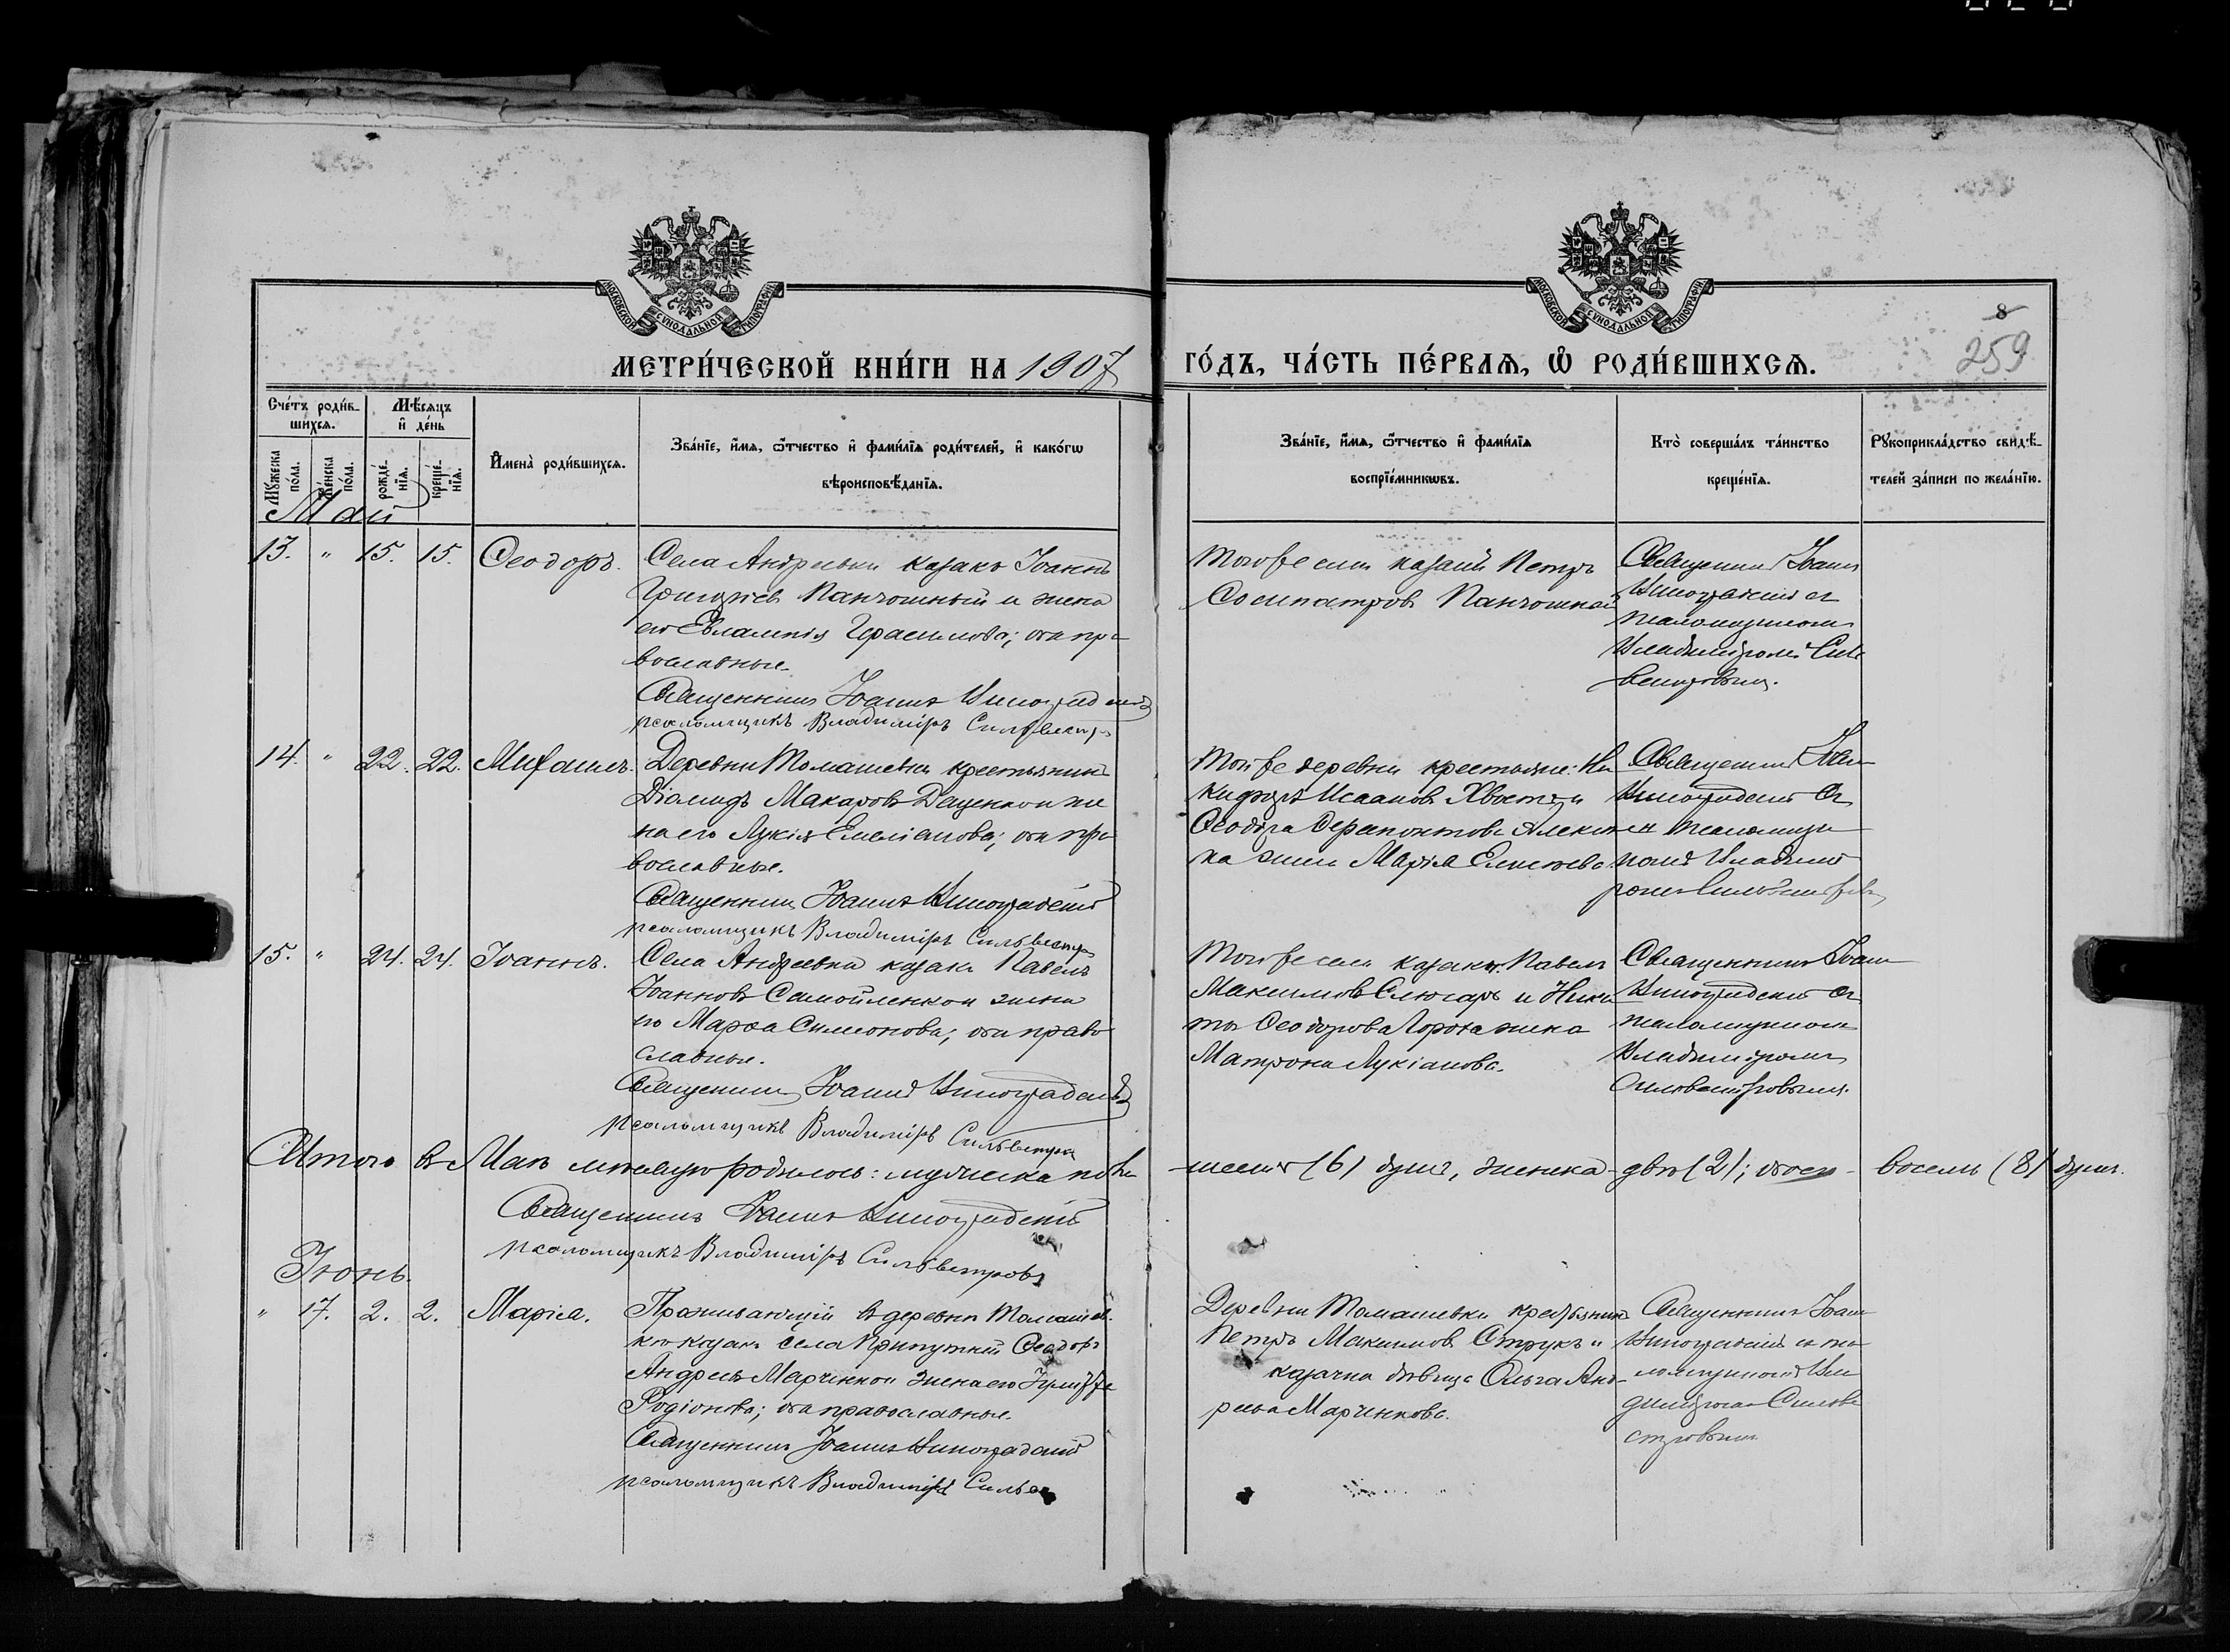 МОСКОВСКОЙ СѴНОДАЛЬНОЙ ТИПОГРАФІИ
МОСКОВСКОЙ СѴНОДАЛЬНОЙ ТИПОГРАФІИ
8
259
МЕТРИ́ЧЕСКОЙ КНИ́ГИ НА 1907
ГО́ДЪ, ЧА́СТЬ ПЕ́РВАѦ, Ѡ҆ РОДИ́ВШИХСѦ.
Сче́тъ роди́в-
шихсѧ.
Мѣ́сѧцъ
и҆ де́нь
Мꙋ́жеска
по́ла.
Же́нска
по́ла.
рожде́-
нїѧ.
креще́-
нїѧ.
И҆мена̀ роди́вшихсѧ.
Зва́нїе, и҆́мѧ, ѻ҆́тчество и҆ фами́лїѧ роди́телей, и҆ како́гѡ
вѣроисповѣ́данїѧ.
Зва́нїе, и҆́мѧ, ѻ҆́тчество и҆ фами́лїѧ
воспрїе́мникѡвъ.
Кто̀ соверша́лъ та́инство
креще́нїѧ.
Рꙋкоприкла́дство свидѣ́-
телей за́писи по жела́нїю.
Май
13. " 15. 15. Ѳеодоръ.
Села Андреевки казакъ Іоаннъ
Григоріевъ Панчошный и жена
его Евлампія Герасимова; оба пра
вославные.
Священникъ Іоаннъ Виноградскій
псаломщикъ Владиміръ Сильвестр
Того же села казакъ Петръ
Сосипатровъ Панчошный
Священникъ Іоаннъ
Виноградскій съ
псаломщикомъ
Владиміромъ Силь
вестровымъ.
14. " 22. 22. Михаилъ.
Деревни Томашевки крестьянинъ
Діомидъ Макаровъ Даценко и же
на его Лукія Емеліанова; оба пра
вославные.
Священникъ Іоаннъ Виноградскій
псаломщикъ Владиміръ Сильвестр
Той же деревни крестьяне: Ни
кифоръ Исааковъ и
Ѳеодора
на жена Марія
Священникъ Іоан
Виноградскій съ
псаломщи
комъ Владимі
ромъ
15. " 24. 24. Іоаннъ.
Села Андреевки казакъ Павелъ
Іоанновъ Самойленко и жена
его Марѳа Симеонова; оба право
славные.
Священникъ Іоаннъ Виноградскій
псаломщикъ Владиміръ Сильвестров
Того же села казаки: Павелъ
Максимовъ Слюсарь и Ники
ты Ѳеодорова Гороха жена
Матрона Лукіанова.
Священникъ Іоанн
Виноградскій съ
псаломщикомъ
Владиміромъ
Сильвестровымъ.
Итого въ Маѣ мѣсяцѣ родилось: мужеска пола шесть (6) душъ, женска- двѣ (2); обоего- восемь (8) душъ.
Священникъ Іоаннъ Виноградскій
псаломщикъ Владиміръ Сильвестровъ
Іюнь.
" 17. 2. 2. Марія.
Проживающій въ деревни Томашев
кѣ казакъ села Припутней Ѳеодоръ
Андреевъ Марченко и жена его
Родіонова; оба православные.
Священникъ Іоаннъ Виноградскій
псаломщикъ Владиміръ Сильв
Деревни Томашевки крестьянинъ
Петръ Максимовъ Струкъ и
казачка дѣвица Ольга Анд-
реева Марченкова.
Священникъ Іоанн
Виноградскій съ пса
ломщикомъ Вла
диміромъ Сильве
стровымъ